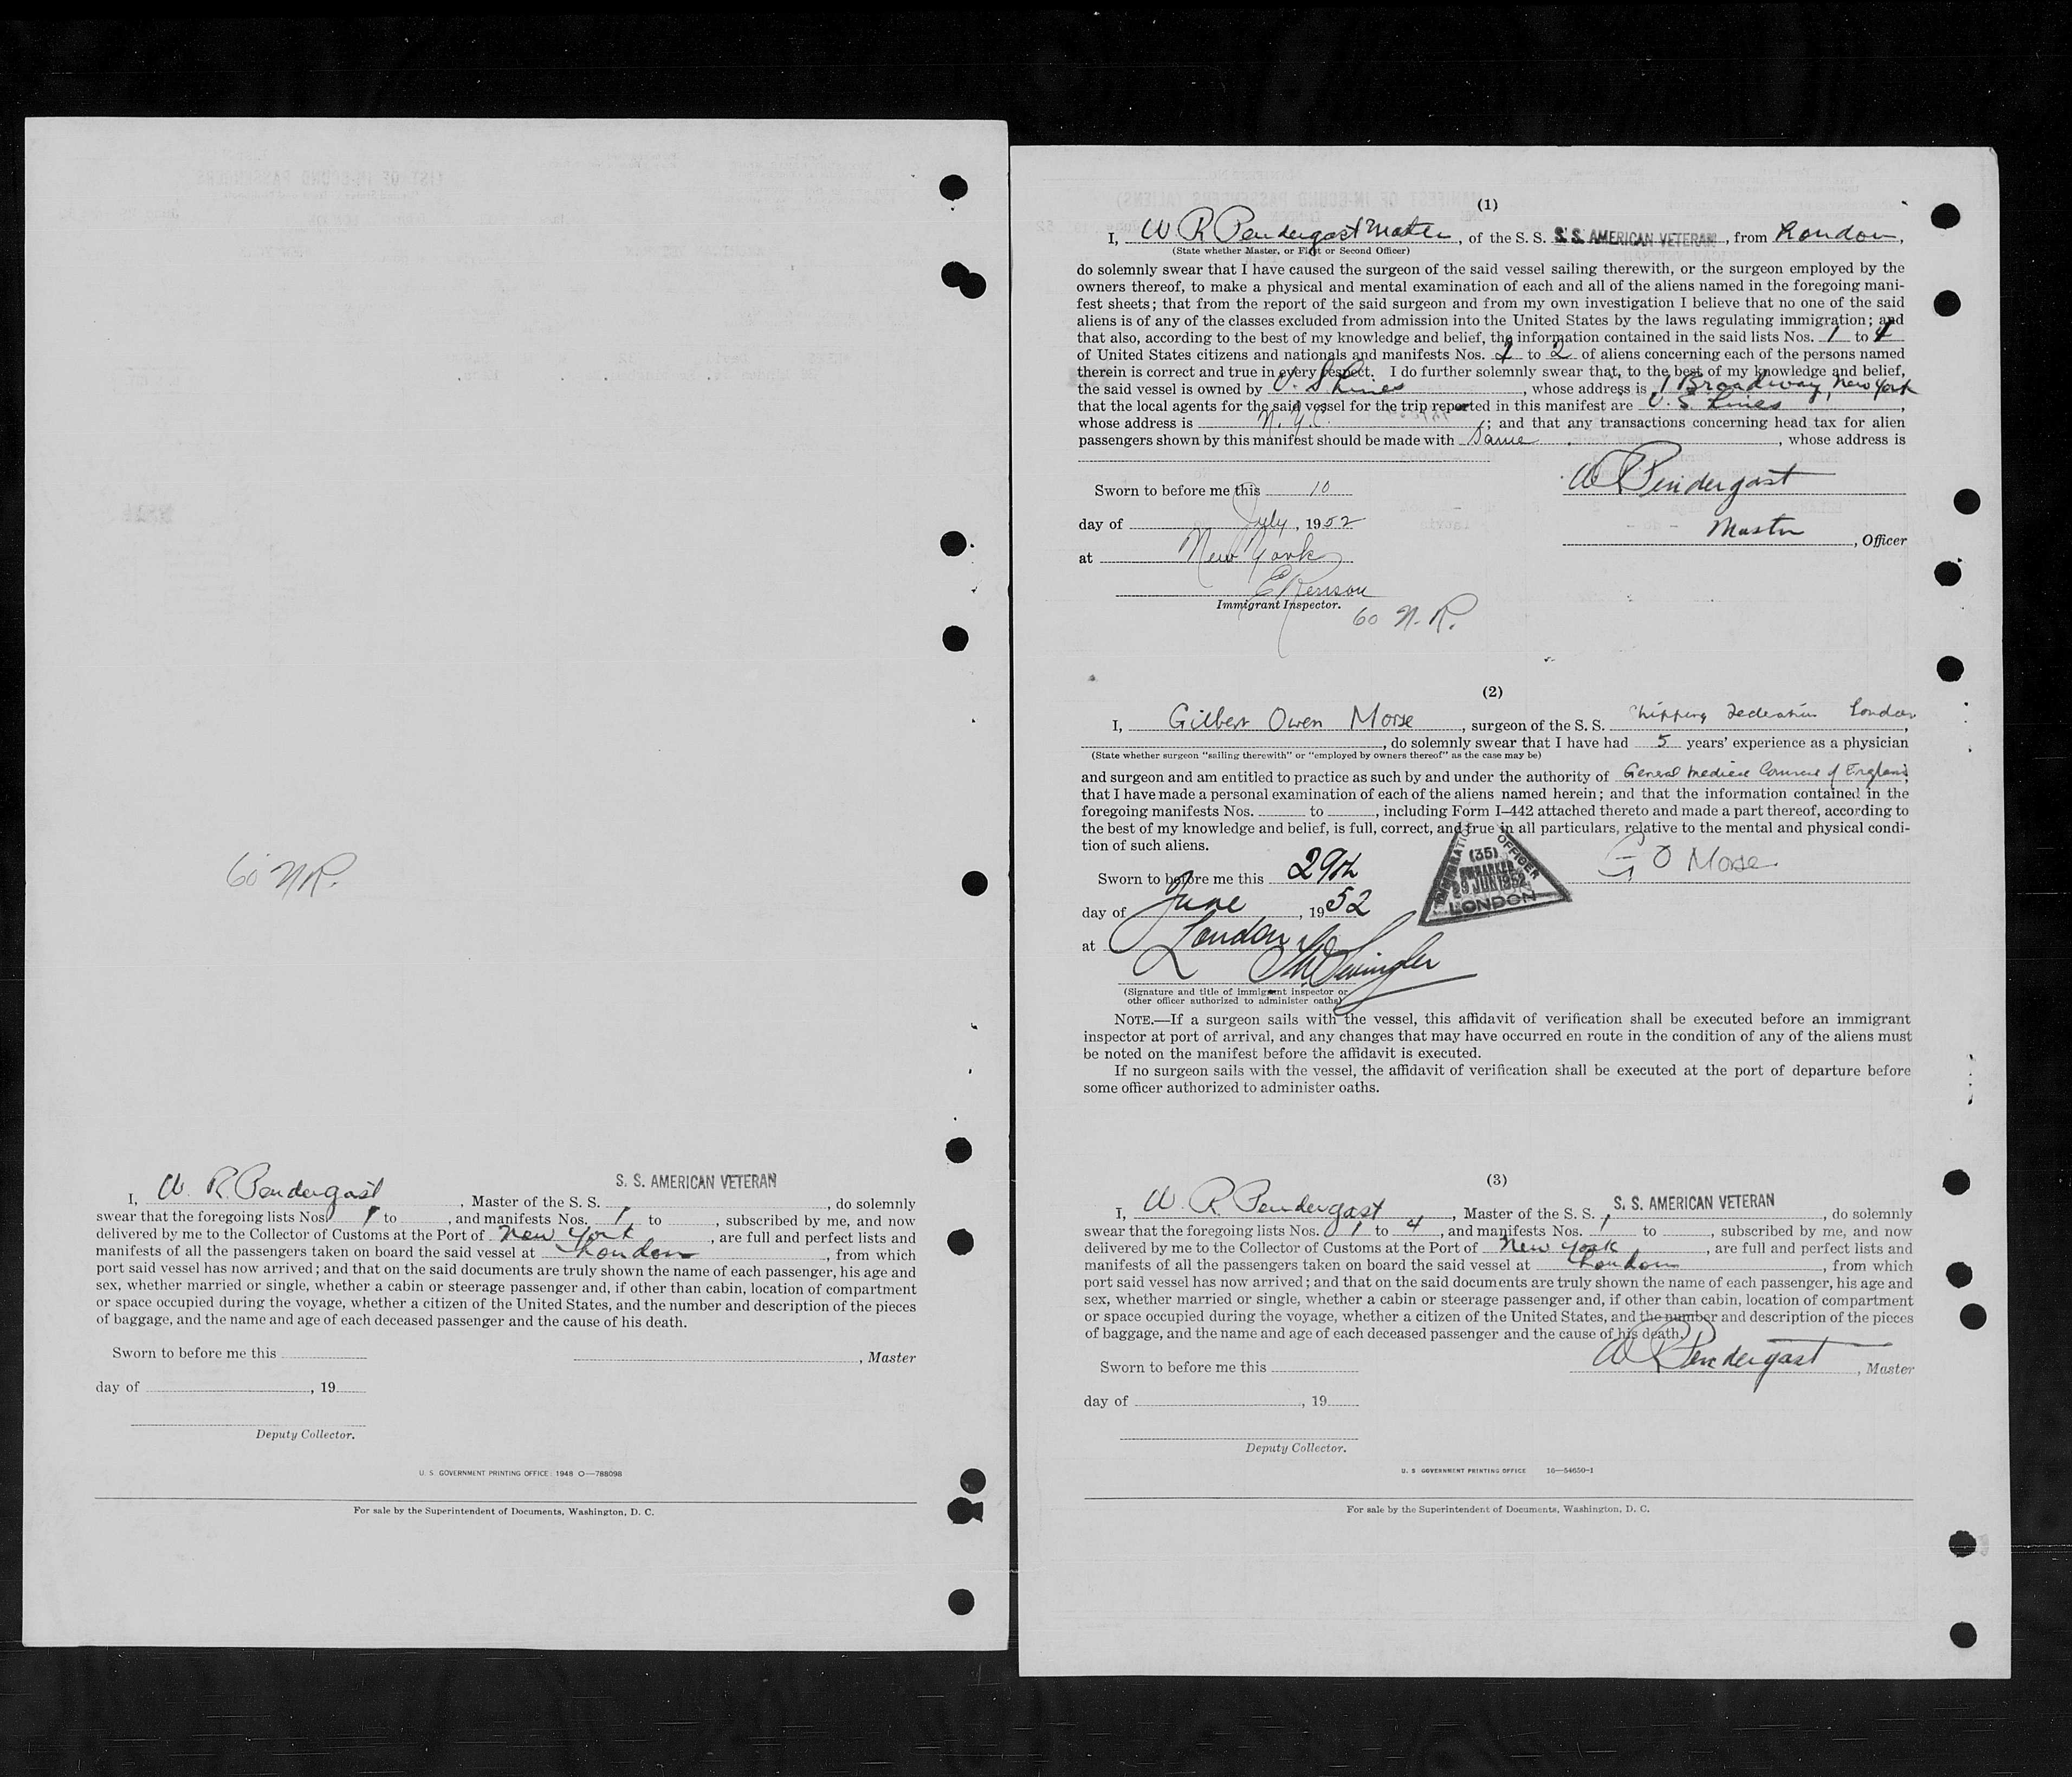 60 N.R.
S. S. AMERICAN VETERAN
I, W. R. Pendergast, Master of the S. S. , do solemnly
swear that the foregoing lists Nos. 1 to , and manifests Nos. 1 to , subscribed by me, and now
delivered by me to the Collector of Customs at the Port of New York, are full and perfect lists and
manifests of all the passengers taken on board the said vessel at London, from which
port said vessel has now arrived; and that on the said documents are truly shown the name of each passenger, his age and
sex, whether married or single, whether a cabin or steerage passenger and, if other than cabin, location of compartment
or space occupied during the voyage, whether a citizen of the United States, and the number and description of the pieces
of baggage, and the name and age of each deceased passenger and the cause of his death.
Sworn to before me this
, Master
day of , 19
Deputy Collector.
U. S. GOVERNMENT PRINTING OFFICE : 1948 O—788098
For sale by the Superintendent of Documents, Washington, D. C.
(1)
I, W R Pendergast Master, of the S. S. S. S. AMERICAN VETERAN, from London,
(State whether Master, or First or Second Officer)
do solemnly swear that I have caused the surgeon of the said vessel sailing therewith, or the surgeon employed by the
owners thereof, to make a physical and mental examination of each and all of the aliens named in the foregoing mani-
fest sheets; that from the report of the said surgeon and from my own investigation I believe that no one of the said
aliens is of any of the classes excluded from admission into the United States by the laws regulating immigration; and
that also, according to the best of my knowledge and belief, the information contained in the said lists Nos. 1 to 4
of United States citizens and nationals and manifests Nos. 1 to 2 of aliens concerning each of the persons named
therein is correct and true in every respect. I do further solemnly swear that, to the best of my knowledge and belief,
the said vessel is owned by U. S Lines, whose address is 1 Broadway, New York
that the local agents for the said vessel for the trip reported in this manifest are U. S Lines,
whose address is N.Y.C.; and that any transactions concerning head tax for alien
passengers shown by this manifest should be made with Same, whose address is
W R Pendergast
Sworn to before me this 10
day of July, 1952
Master, Officer
at New York
Immigrant Inspector.
60 N.R.
(2)
I, Gilbert Owen Morse, surgeon of the S. S. Shipping Federation London,
, do solemnly swear that I have had 5 years' experience as a physician
(State whether surgeon "sailing therewith" or "employed by owners thereof" as the case may be)
and surgeon and am entitled to practice as such by and under the authority of General Medical Council of England,
that I have made a personal examination of each of the aliens named herein; and that the information contained in the
foregoing manifests Nos. to , including Form I–442 attached thereto and made a part thereof, according to
the best of my knowledge and belief, is full, correct, and true in all particulars, relative to the mental and physical condi-
tion of such aliens.
IMMIGRATION OFFICER
(35)
EMBARKED
29 JUN 1952
LONDON
G O Morse
Sworn to before me this 29th
day of June, 1952
at London
(Signature and title of immigrant inspector or
other officer authorized to administer oaths)
NOTE.—If a surgeon sails with the vessel, this affidavit of verification shall be executed before an immigrant
inspector at port of arrival, and any changes that may have occurred en route in the condition of any of the aliens must
be noted on the manifest before the affidavit is executed.
If no surgeon sails with the vessel, the affidavit of verification shall be executed at the port of departure before
some officer authorized to administer oaths.
(3)
S. S. AMERICAN VETERAN
I, W. R. Pendergast, Master of the S. S. , do solemnly
swear that the foregoing lists Nos. 1 to 4, and manifests Nos. 1 to , subscribed by me, and now
delivered by me to the Collector of Customs at the Port of New York, are full and perfect lists and
manifests of all the passengers taken on board the said vessel at London, from which
port said vessel has now arrived; and that on the said documents are truly shown the name of each passenger, his age and
sex, whether married or single, whether a cabin or steerage passenger and, if other than cabin, location of compartment
or space occupied during the voyage, whether a citizen of the United States, and the number and description of the pieces
of baggage, and the name and age of each deceased passenger and the cause of his death.
W R Pendergast, Master
Sworn to before me this
day of , 19
Deputy Collector.
U. S. GOVERNMENT PRINTING OFFICE 16—54650-1
For sale by the Superintendent of Documents, Washington, D. C.